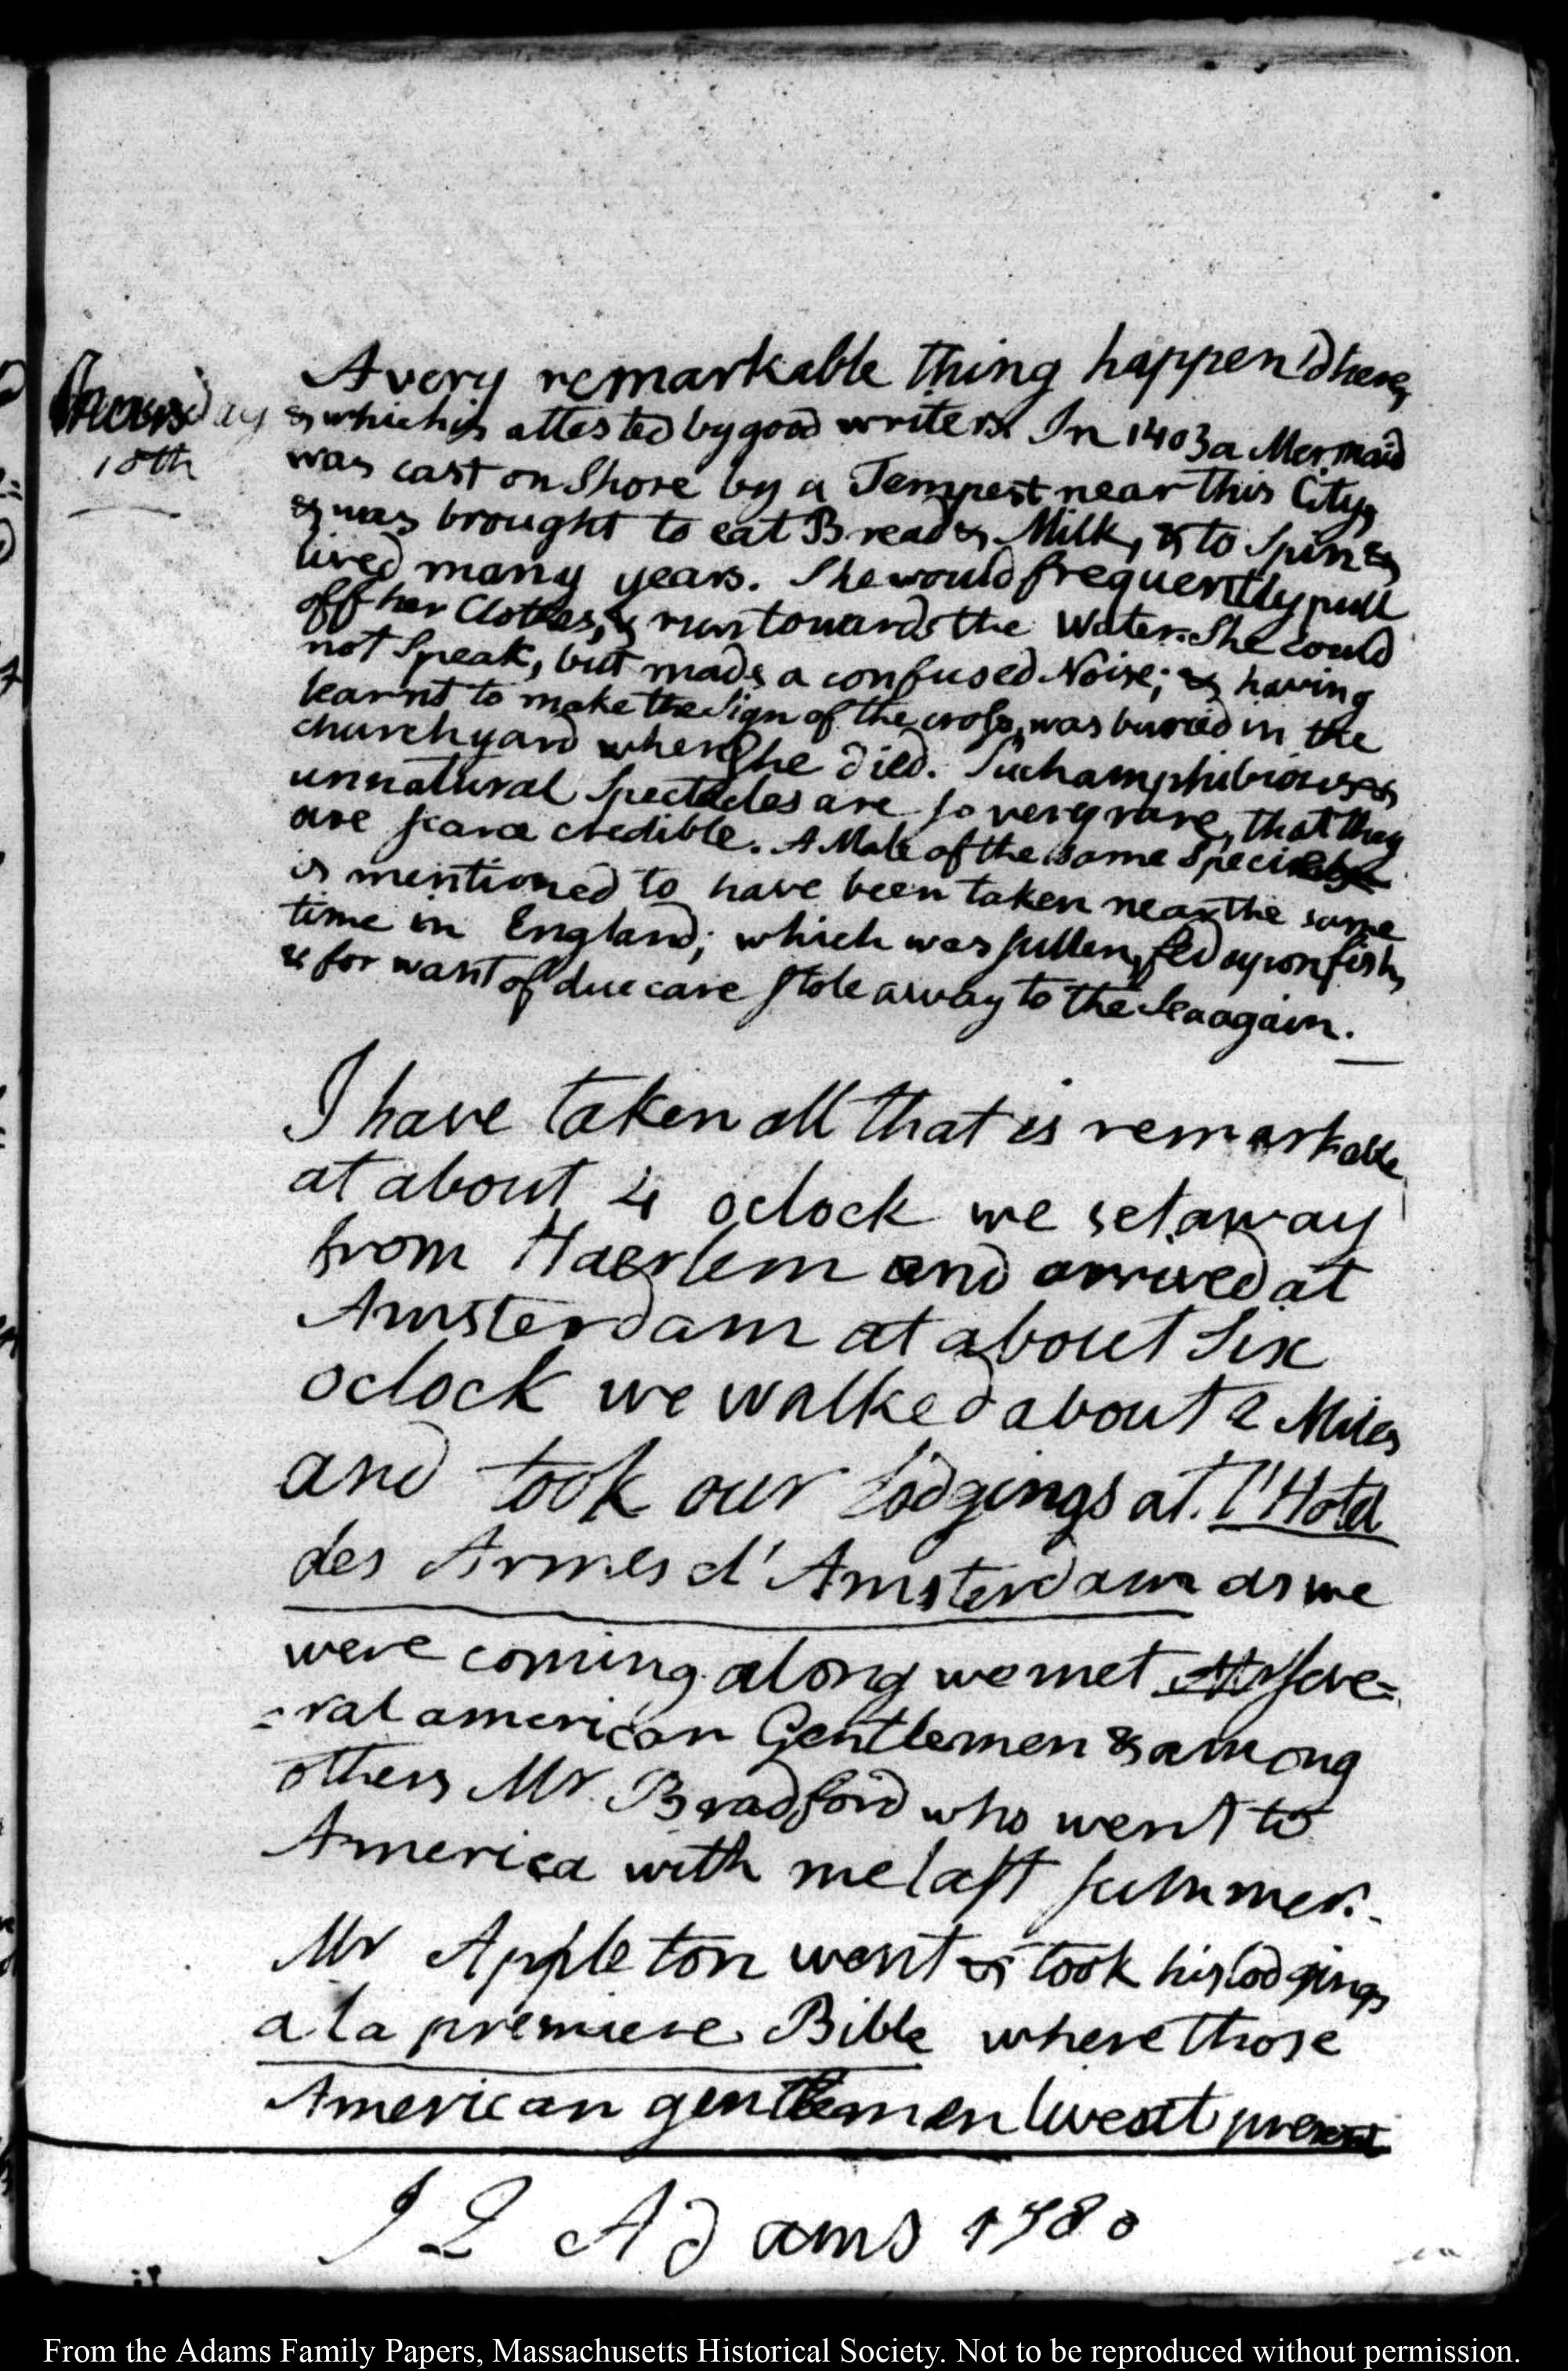 Thursday
10th
A very remarkable thing happen'd here,
& which is attested by good writers. In 1403 a Mermaid
was cast on Shore by a Tempest near this City,
& was brought to eat Bread & Milk, & to Spin &
lived many years. She would frequently pull
off her Clothes, & run towards the Water. She could
not Speak, but made a confused Noise; & having
learnt to make the Sign of the cross, was buried in the
churchyard when She died. Such amphibious &
unnatural Spectacles are so very rare, that they
are scarce credible. A Male of the same Species
is mentioned to have been taken near the same
time in England; which was sullen, fed upon fish,
& for want of due care stole away to the Sea again.
I have taken all that is remarkable
at about 4 oclock we set away
from Haerlem and arrived at
Amsterdam at about Six
oclock we walked about 2 Miles
and took our lodgings at l'Hotel
des Armes d'Amsterdam as we
were coming along we met seve=
=ral american Gentlemen & among
others Mr. Bradford who went to
America with me last summer.
Mr Appleton went & took his lodgings
a la premiere Bible where those
American gentlemen live at present
J Q Adams 1780
From the Adams Family Papers, Massachusetts Historical Society. Not to be reproduced without permission.